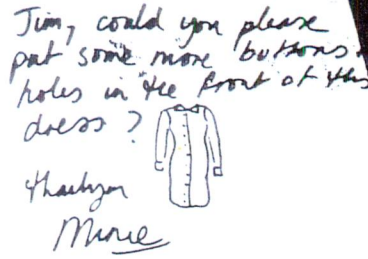 Jim, could you please
put some more buttons &
holes in the front of this
dress?
thankyou